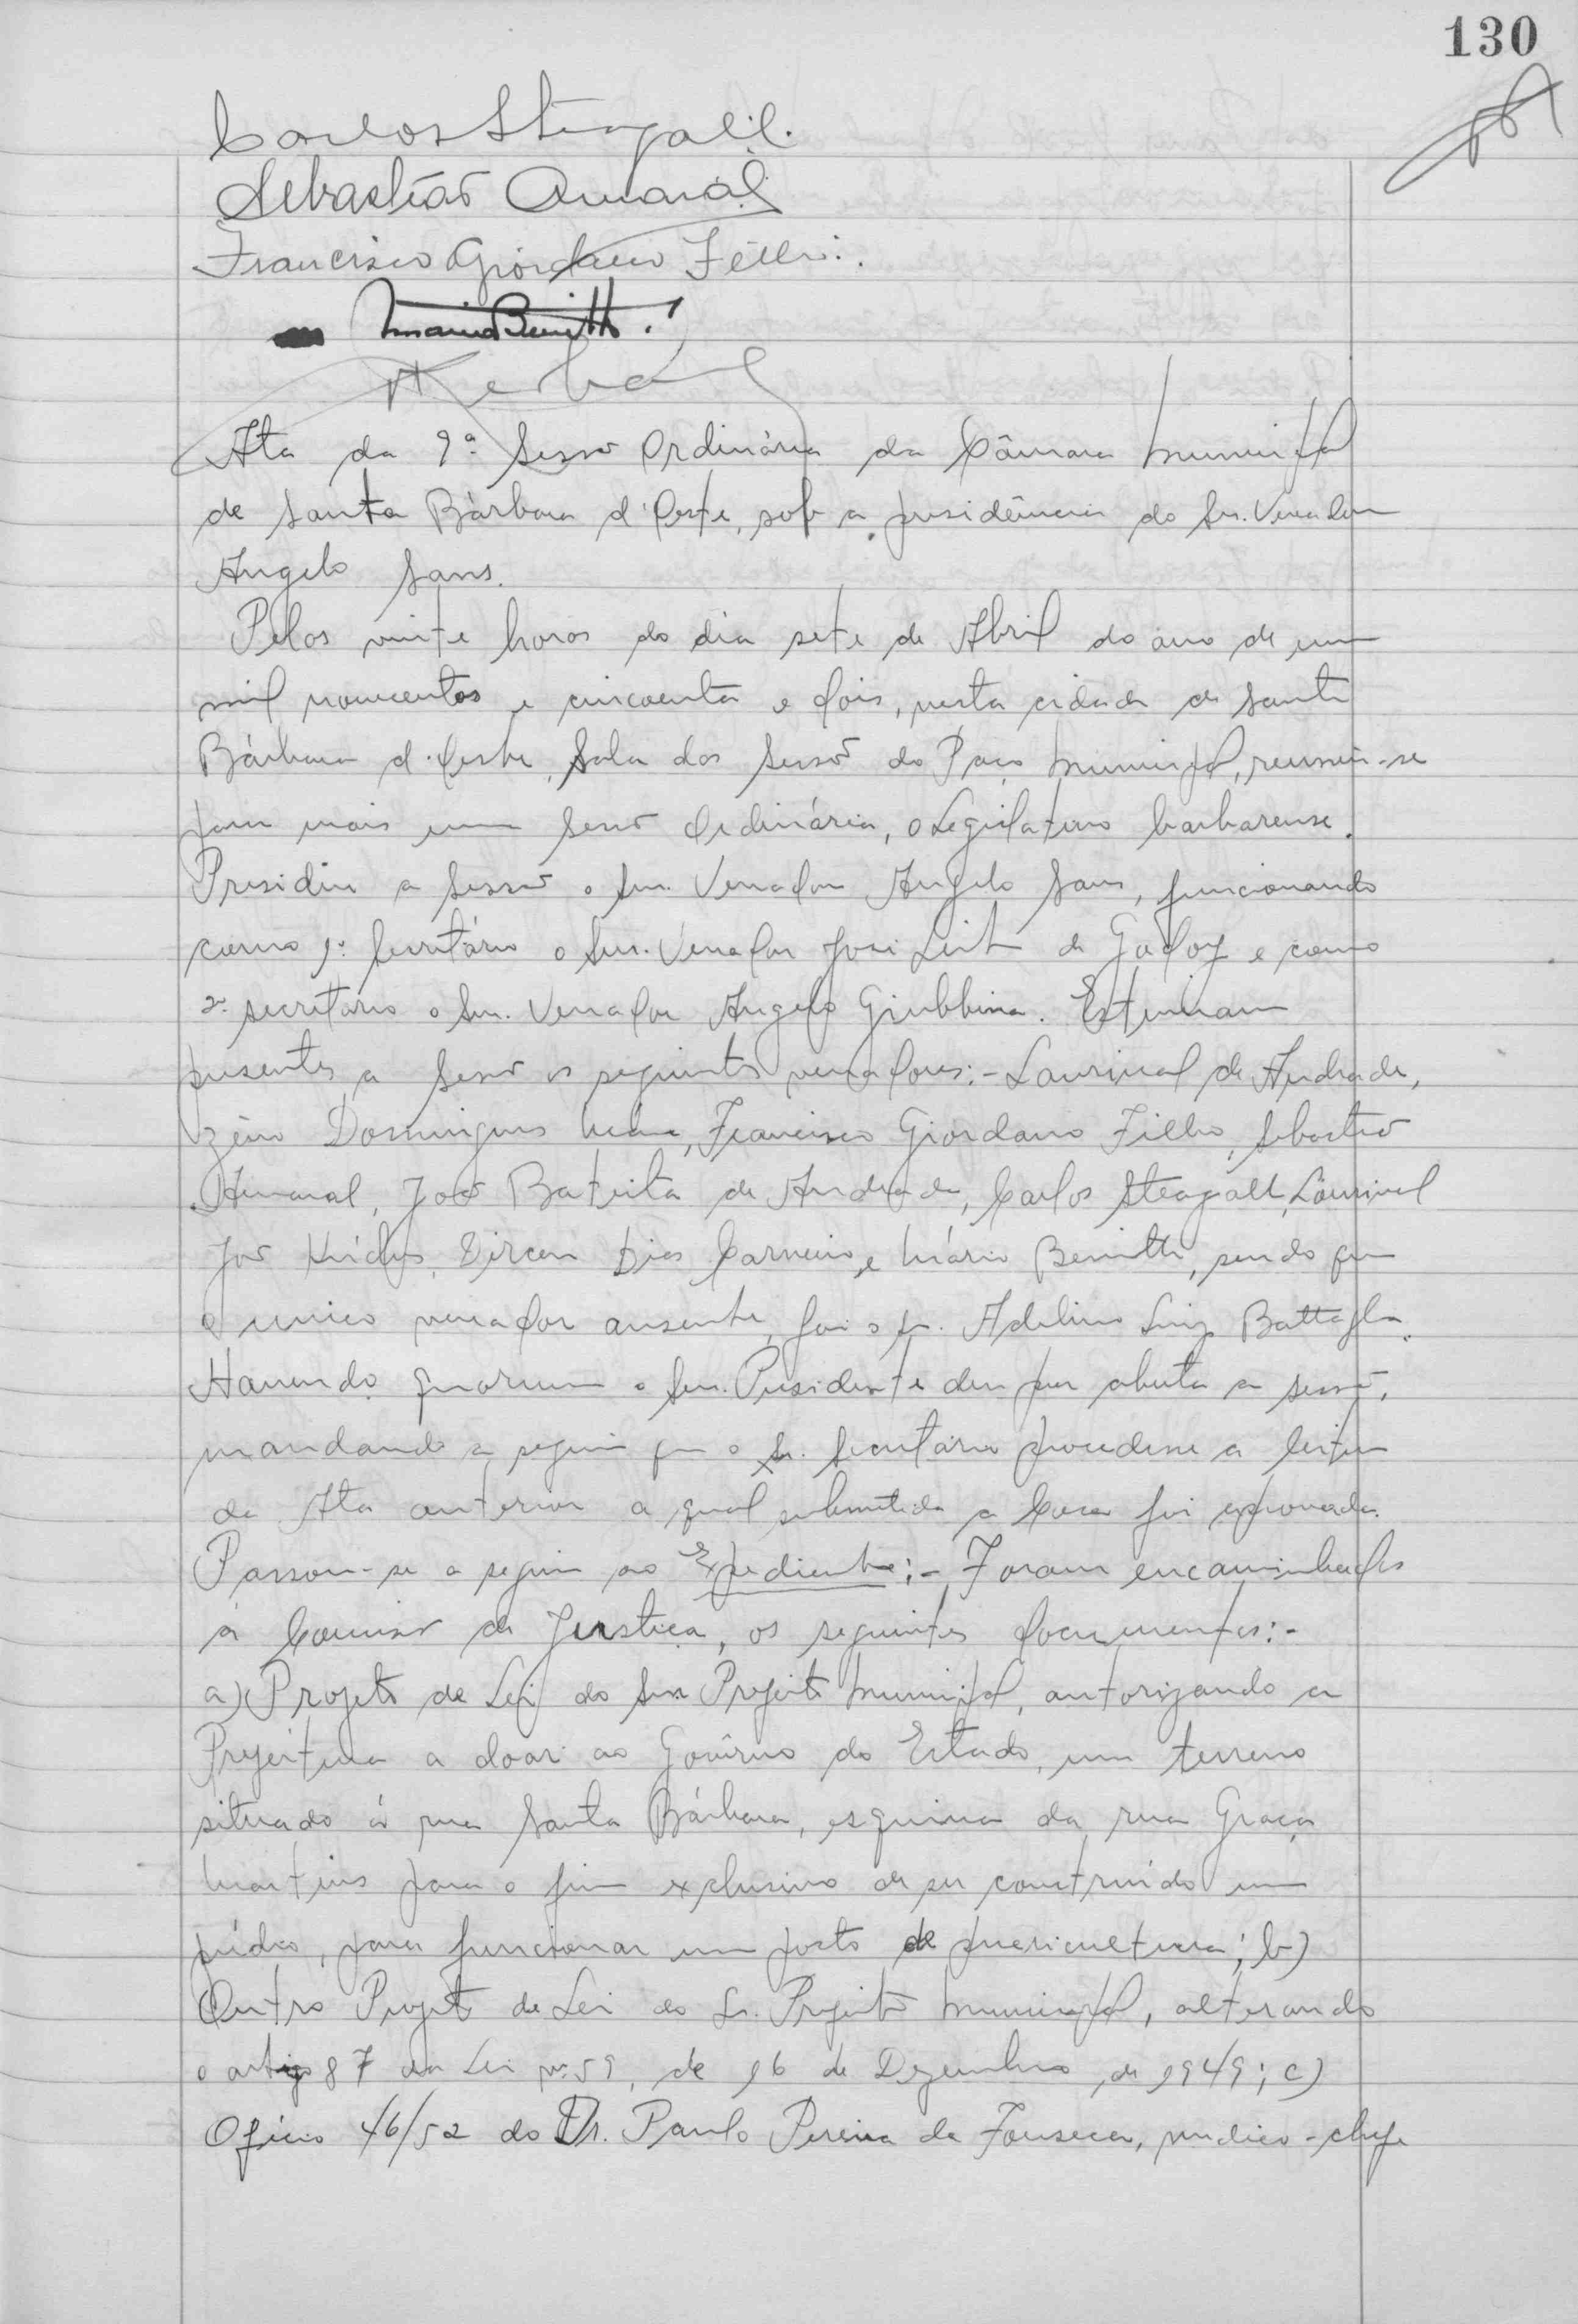 130
Carlos Steagall.
Sebastião Amaral
Francisco Giordano Filho.
Mario Benitti.
Ata da 9ª Sessão Ordinária da Câmara Municipal
de Santa Bárbara d'Oeste, sob a presidência do Snr. Vereador
Angelo Sans.
Pelas vinte horas do dia sete de Abril do ano de um
mil novecentos e cincoenta e dois, nesta cidade de Santa
Bárbara d'Oeste, Sala das Sessões do Paço Municipal, reuniu-se
para mais uma Sessão Ordinária, o Legislativo barbarense.
Presidiu a Sessão o Snr. Vereador Angelo Sans, funcionando
como 1º Secretário o Snr. Vereador José Leite de Godoy e como
2º secretário o Snr. Vereador Angelo Giubbina. Estiveram
presentes a Sessão os seguintes vereadores:- Lourival de Andrade,
Zéno Domingues Maia, Francisco Giordano Filho, Sebastião
Amaral, João Batista de Andrade, Carlos Steagall, Lourival
Dirceu Dias Carneiro e Mário Benitti, sendo que
o unico vereador ausente, foi o sr. Adelino Luiz Battaglia.
Havendo quorum o Snr. Presidente deu por aberta a sessão,
mandando a seguir que o Sr. Secretário procedesse a leitura
da Ata anterior a qual submetida a Casa foi aprovada.
Passou-se a seguir ao Expediente:- Foram encaminhados
à Comissão de Justiça, os seguintes documentos:-
a) Projeto de Lei do Snr Prefeito Municipal, autorizando a
Prefeitura a doar ao Govêrno do Estado, um terreno
situado á rua Santa Bárbara, esquina da rua Graça
Martins para o fim exclusivo de ser construído um
prédio, para funcionar um posto de puericultura; b)
Outro Projeto de Lei do Sr. Prefeito Municipal, alterando
o artigo 87 da Lei nº 59, de 16 de Dezembro de 1949; c)
Ofício 46/52 do Dr. Paulo Pereira da Fonseca, médico-chefe